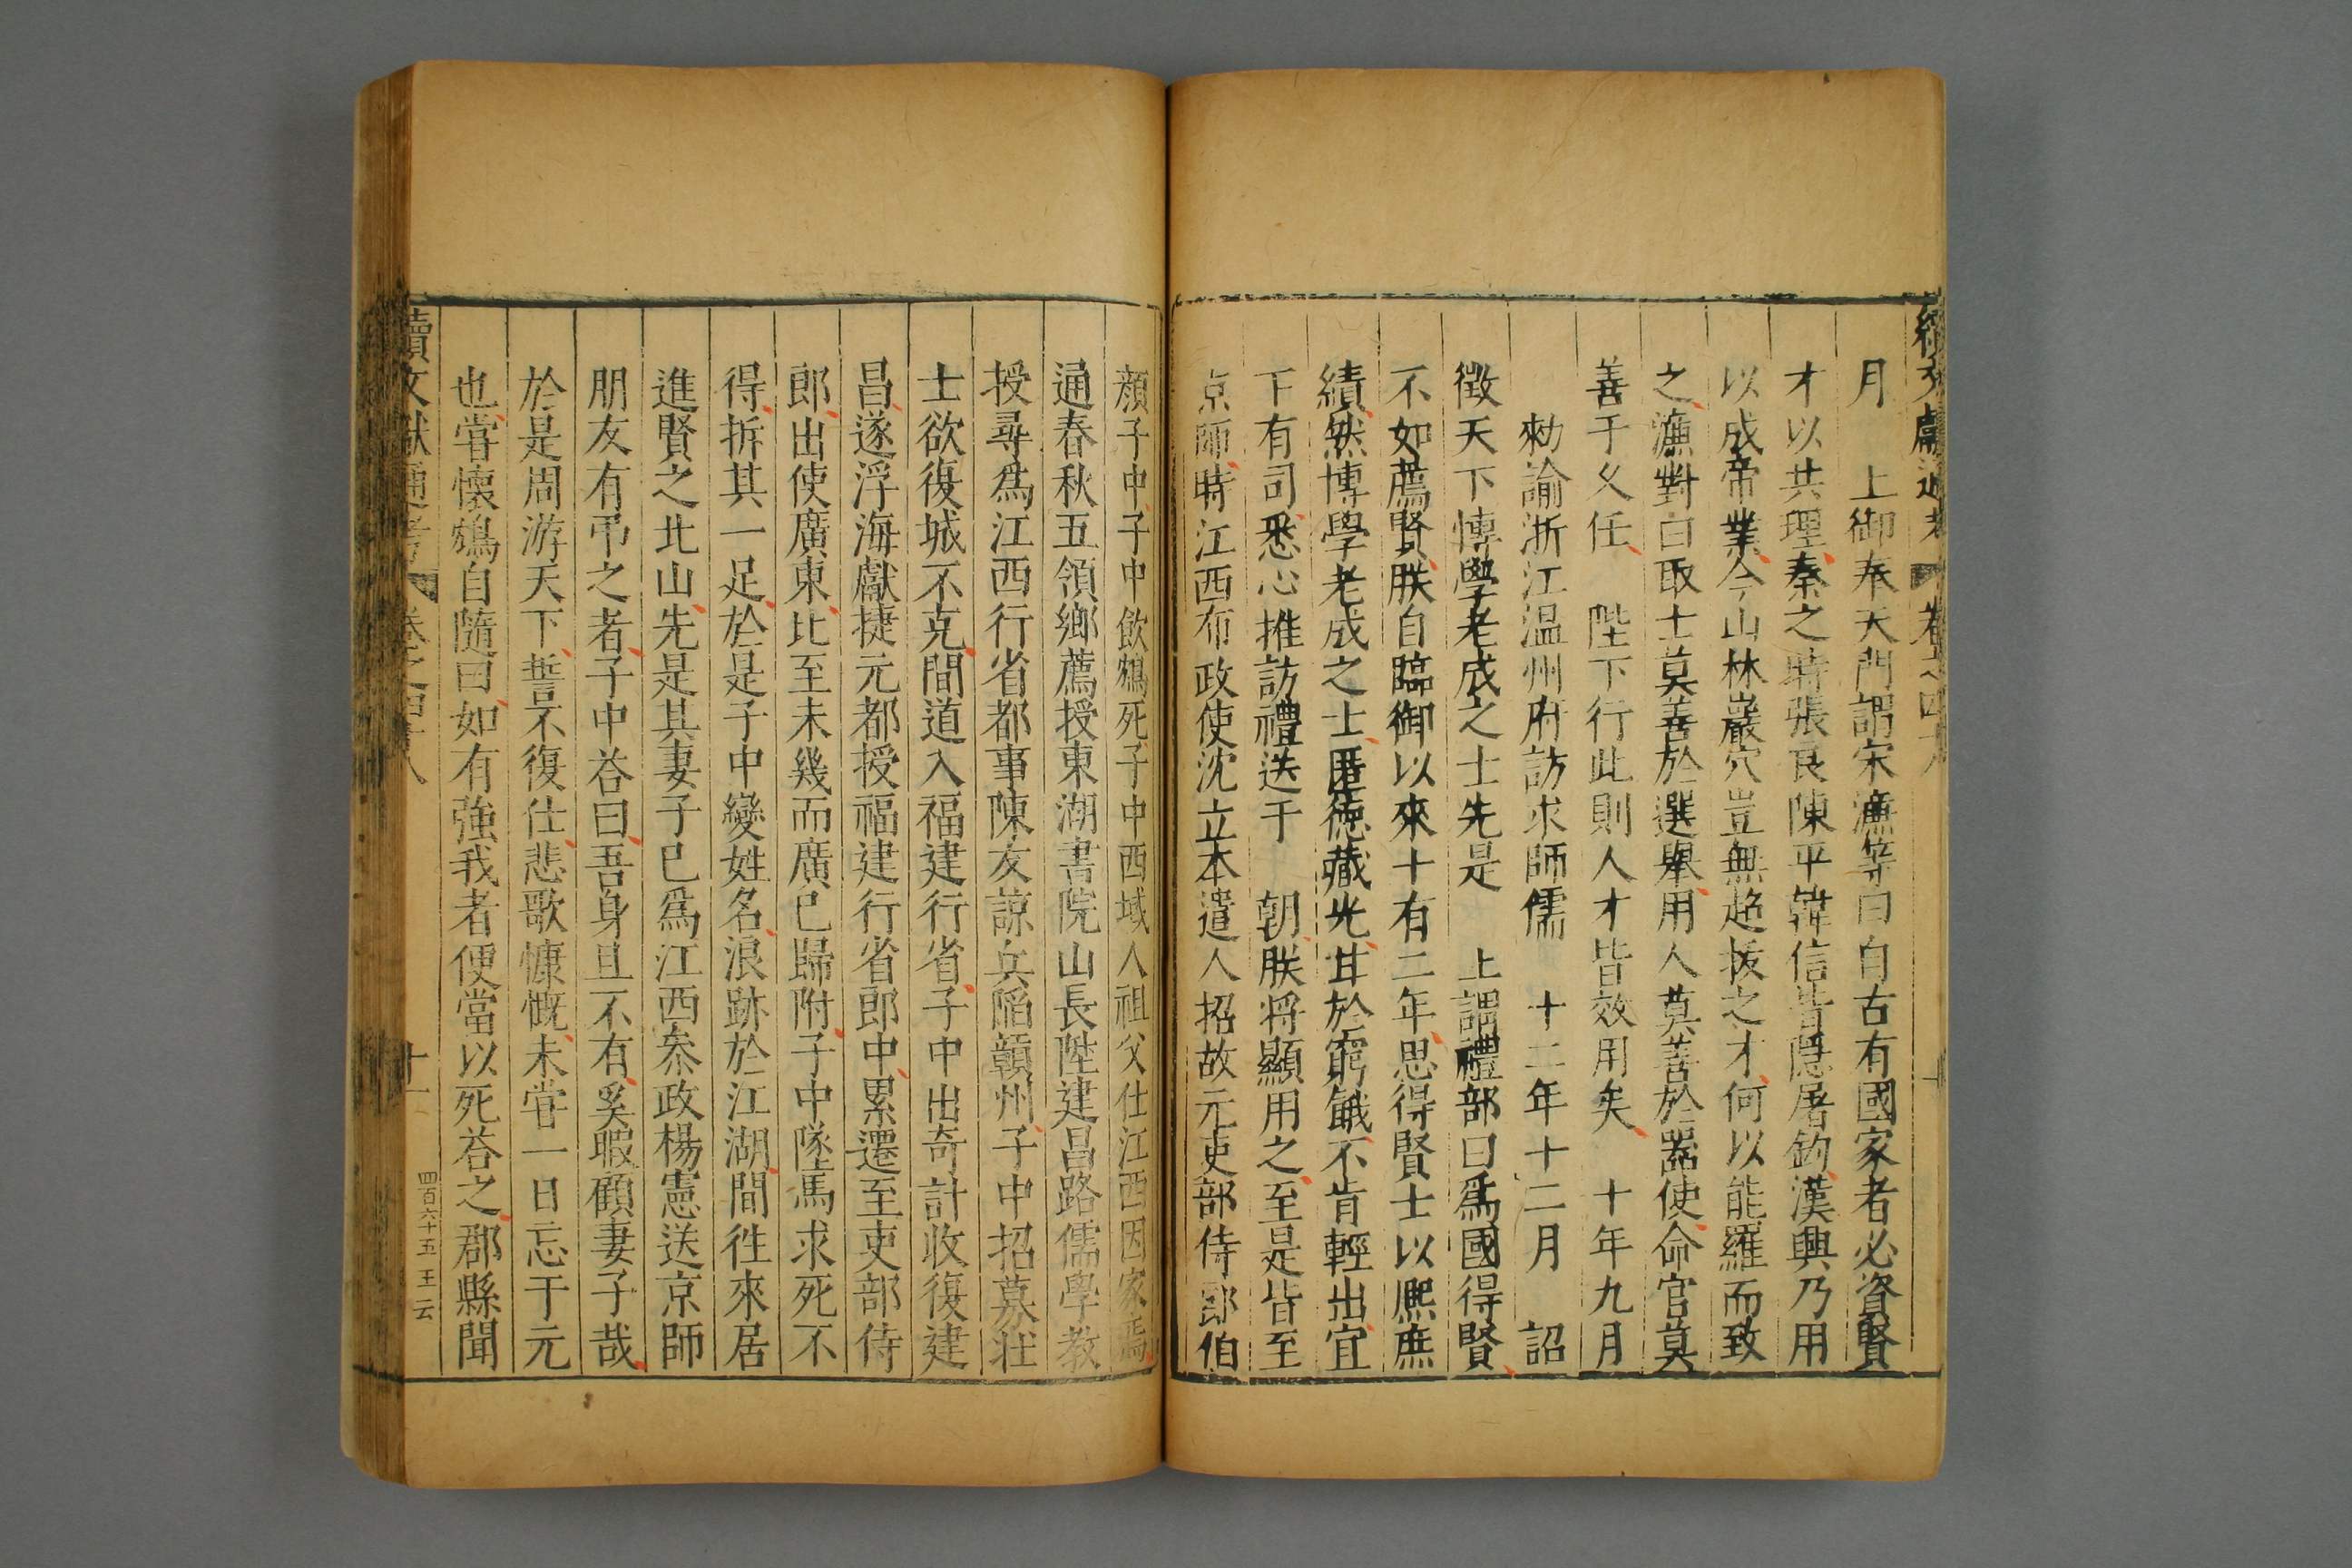 續文獻通考 卷之四十八
月　上御奉天門謂宋濂等曰自古有國家者必資賢
才以共理秦之時張良陳平韓信皆隱屠釣漢興乃用
以成帝業今山林巖穴豈無超拔之才何以能羅而致
之濂對曰取士莫善於選舉用人莫善於器使命官莫
善于久任　陛下行此則人才皆效用矣　十年九月
勑諭浙江温州府訪求師儒　十二年十二月　詔
徵天下博學老成之士先是　上謂禮部曰爲國得賢
不如薦賢朕自臨御以來十有二年思得賢士以熈庶
績然博學老成之士匿德藏光甘於窮餓不肯輕出宜
下有司悉心推訪禮送于　朝朕将顯用之至是皆至
京師時江西布政使沈立本遣人招故元吏部侍郎伯
顔子中子中飲鴆死子中西域人祖父仕江西因家焉
通春秋五領鄉薦授東湖書院山長陞建昌路儒學教
授尋爲江西行省都事陳友諒兵陷贛州子中招募壮
士欲復城不克間道入福建行省子中出奇計收復建
昌遂浮海獻捷元都授福建行省郎中累遷至吏部侍
郎出使廣東比至未幾而廣已歸附子中墜馬求死不
得拆其一足於是子中變姓名浪跡於江湖間徃來居
進賢之北山先是其妻子已爲江西叅政楊憲送京師
朋友有弔之者子中荅曰吾身且不有奚暇顧妻子哉
於是周游天下誓不復仕悲歌慷慨未甞一日忘于元
也甞懷鴆自隨曰如有強我者便當以死荅之郡縣聞
續文獻通考 卷之四十八 十一 四百六十五 王云